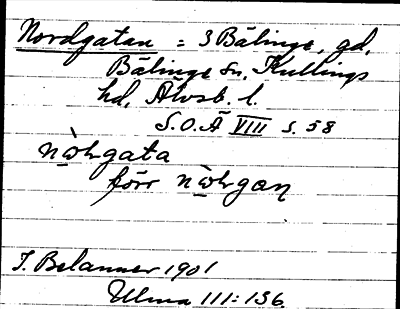 Nordgatan = 3 Bälinge, gd,
Bälinge sn, Kullings
hd, Älvsb. l.
S.O.Ä VIII s. 58
förr
J. Belanner 1901
Ulma 111:136